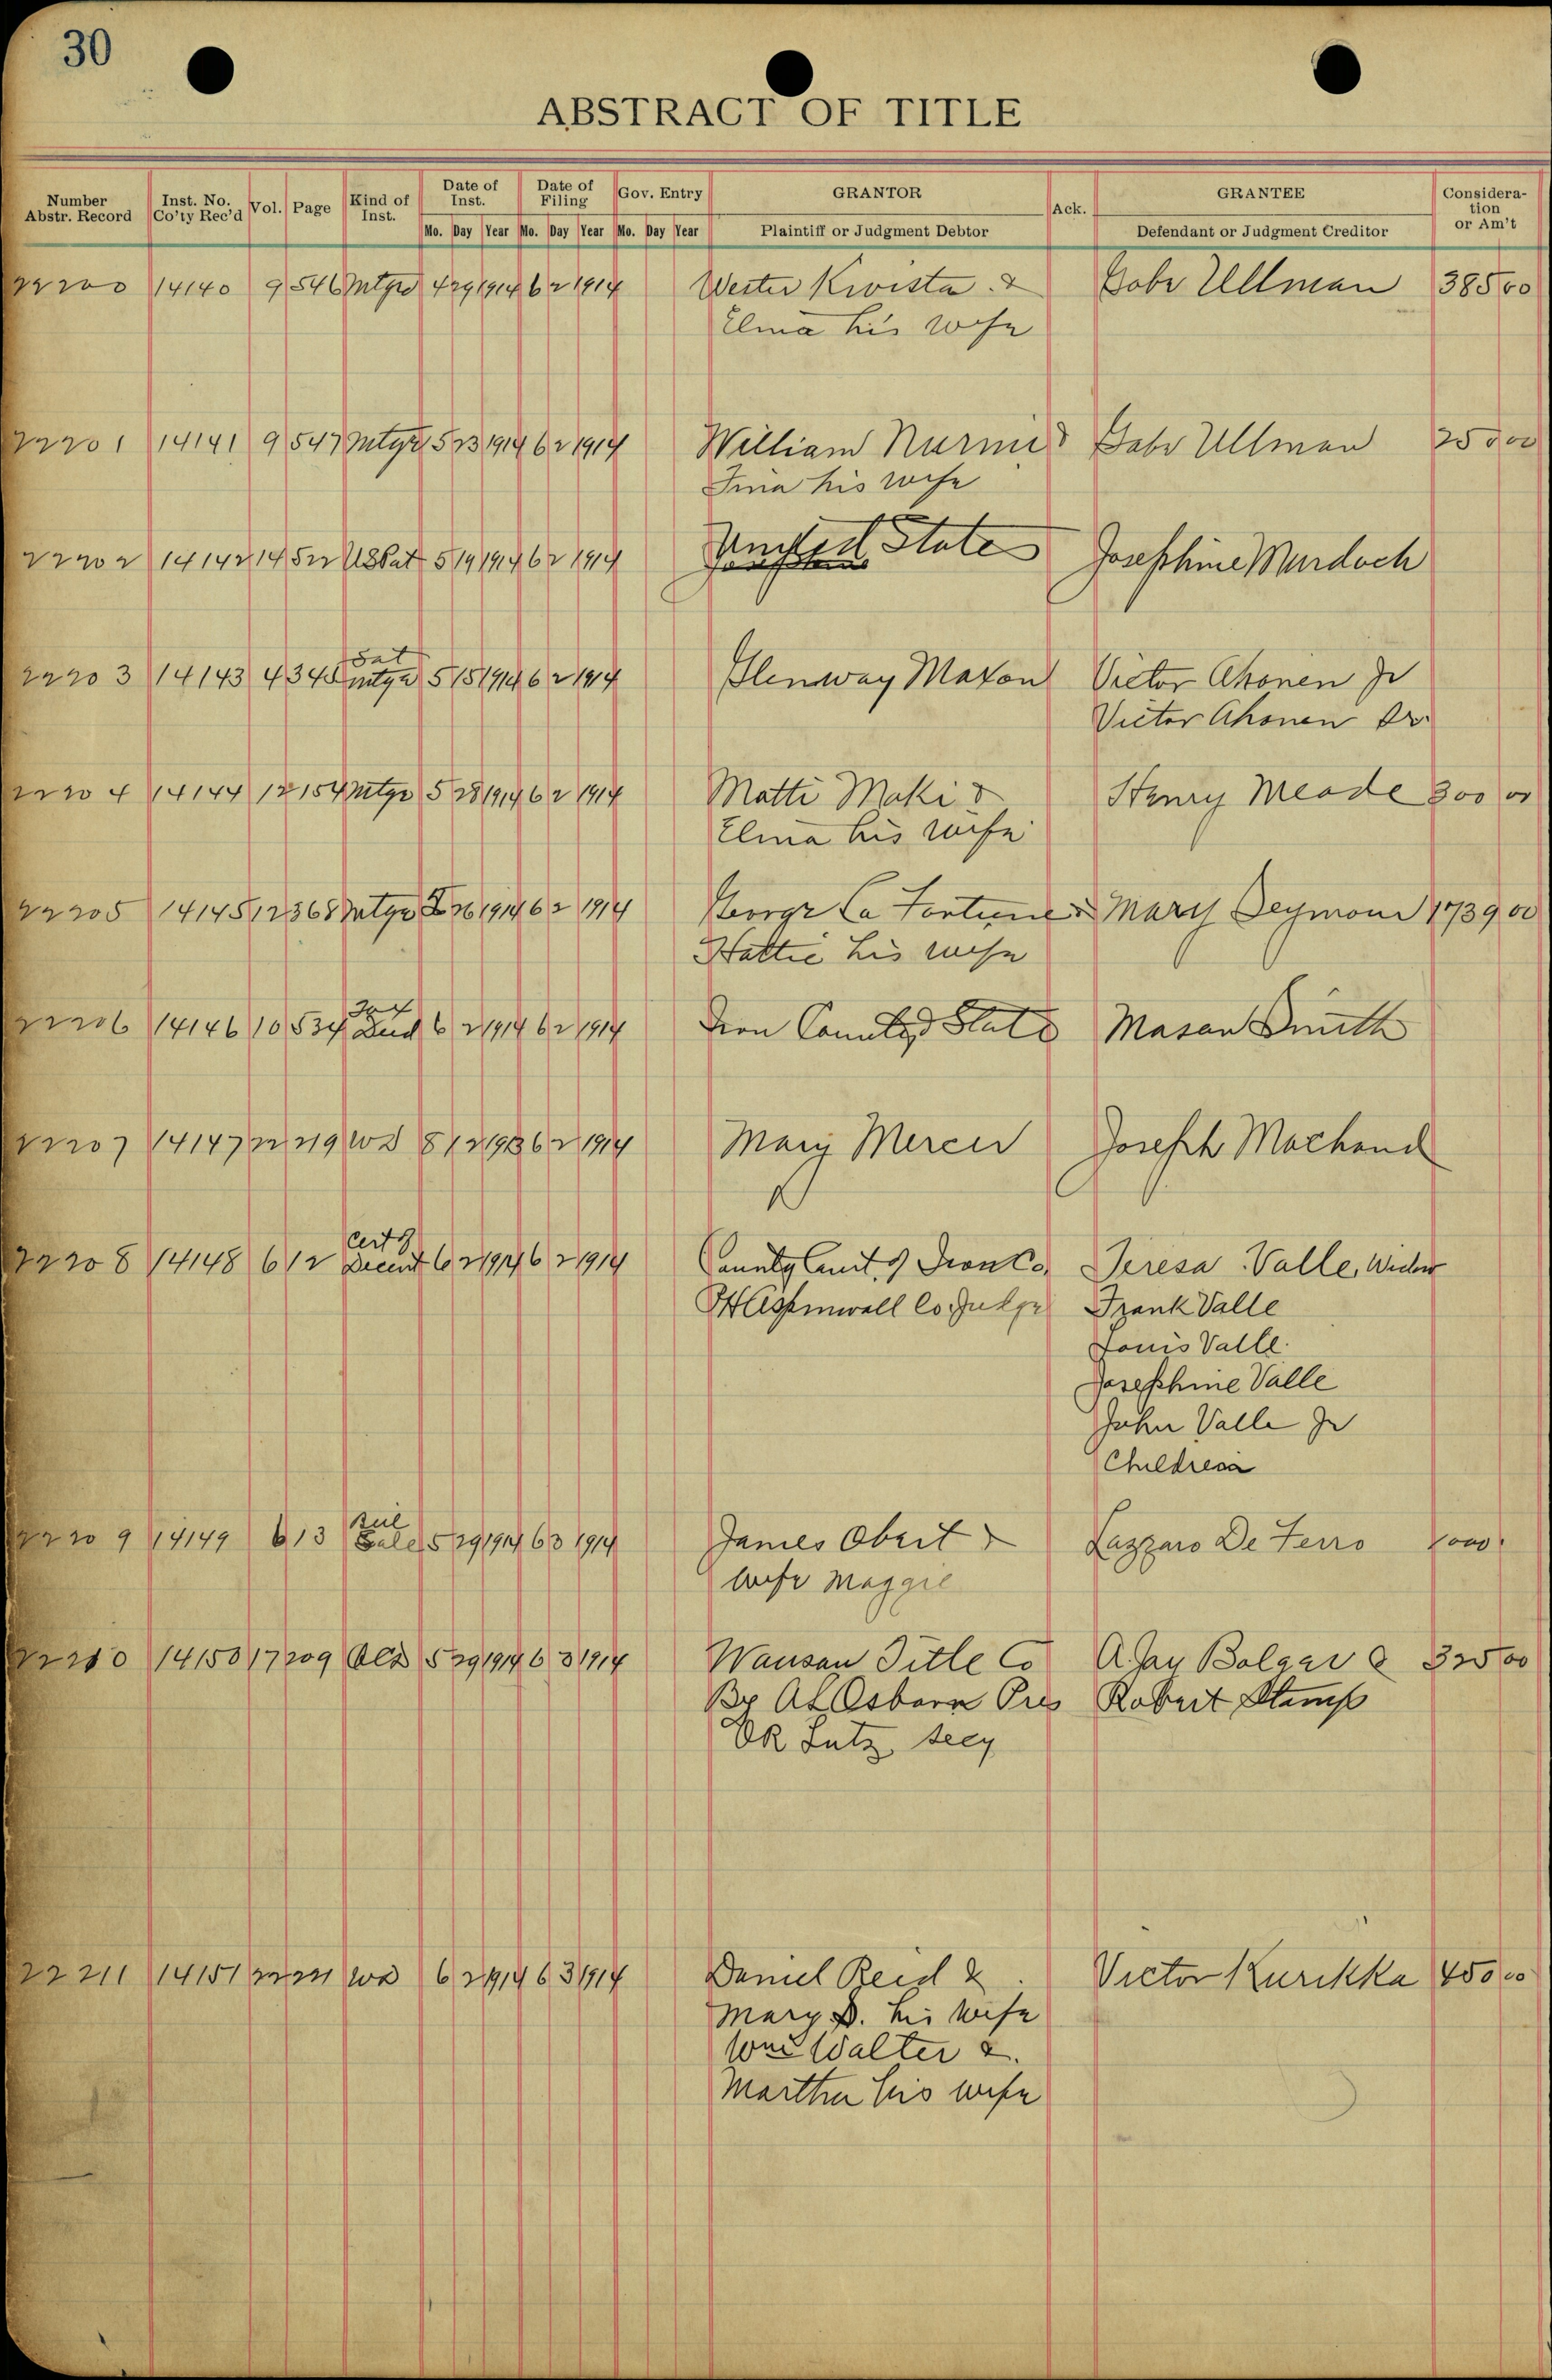 30
ABSTRACT OF TITLE
Number Abstr. Record Inst. No. Co'ty Rec'd Vol. Page Kind of Inst. Date of Inst. Date of Filing Gov. Entry GRANTOR Ack. GRANTEE Consideration or Am't
Mo. Day Year Mo. Day Year Mo. Day Year Plaintiff or Judgment Debtor Defendant or Judgment Creditor
22200 14140 9 546 Mtge 4 29 1914 6 2 1914 Wester Kivista & Gabe Ullman 385 00
Elma his wife
22201 14141 9 547 Mtge 5 23 1914 6 2 1914 William Nurmi & Gabe Ullman 250 00
Fina his wife
22202 14142 14 522 US Pat 5 19 1914 6 2 1914 United States Josephine Murdoch
Sat
22203 14143 4 345 mtge 5 15 1914 6 2 1914 Glenway Maxon Victor Ahonen Jr
Victor Ahonen Sr
22204 14144 12 154 Mtge 5 28 1914 6 2 1914 Matti Maki & Henry Meade 300 00
Elma his wife
22205 14145 12 368 Mtge 26 1914 6 2 1914 George La Fortune & Mary Seymour 1739 00
Hattie his wife
Tax
22206 14146 10 534 Deed 6 2 1914 6 2 1914 Iron County & State Mason Smith
22207 14147 22 219 WD 8 12 1913 6 2 1914 Mary Mercer Joseph Machand
Cert of
22208 14148 6 12 Decent 6 2 1914 6 2 1914 County Court of Iron Co. Teresa Valle, Widow
Aspinwall Co. Judge Frank Valle
Louis Valle
Josephine Valle
John Valle Jr
Children
Bill
22209 14149 6 13 Sale 5 29 1914 6 3 1914 James Obert & Lazzaro De Ferro
wife Maggie
22210 14150 17 209 5 29 1914 6 3 1914 Wausau Title Co A. Jay Bolger & 325 00
By A L Osborn Pres Robert Stamp
Lutz, Secy
22211 14151 22 221 WD 6 2 1914 6 3 1914 Daniel Reid & Victor Kurikka 450 00
Mary D. his wife
Wm Walter &
Martha his wife